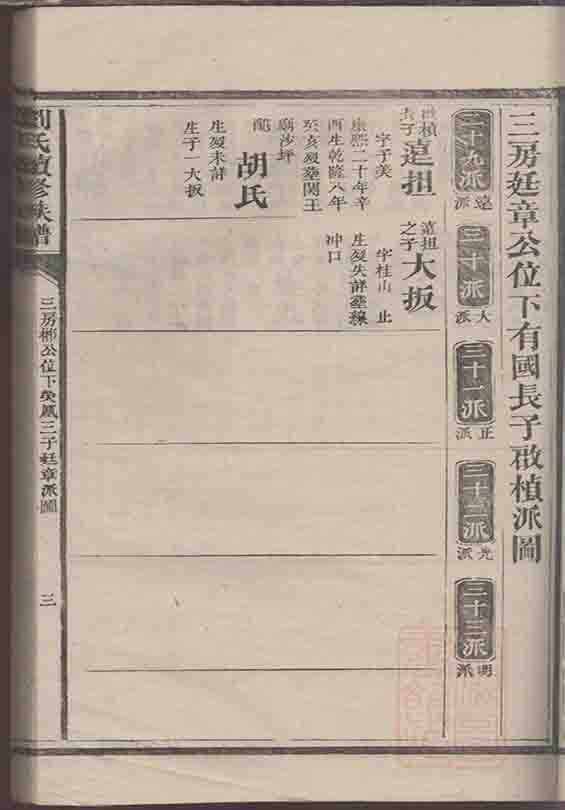 三房廷章公位下有國長子啟植派圖
二十九派
遠派
三十派
大派
三十一派
正派
三十二派
光派
三十三派
明派
啟植
長子
遠担
字子美
康熙二十年辛
酉生乾隆八年
癸亥歿葬関王
廟沙坪
配
胡氏
生歿未詳
生子一大扳
遠担
之子
大扳
字桂山 止
生歿失詳葬線
冲口
劉氏續修族譜
三房郴公位下癸鳳三子廷章派圖
三